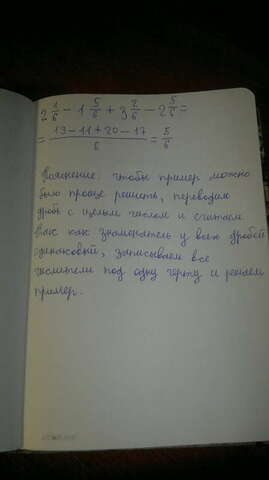 2 1/6 - 1 5/6 + 3 2/6 - 2 5/6 =
= 13 - 11 + 20 - 17 / 6 = 5/6
Пояснение: чтобы пример можно
было проще решить, переводим
дробь с целым числом и считаем.
Так как знаменатель у всех дробей
одинаковый, записываем все
числители под одну черту и решаем
пример.